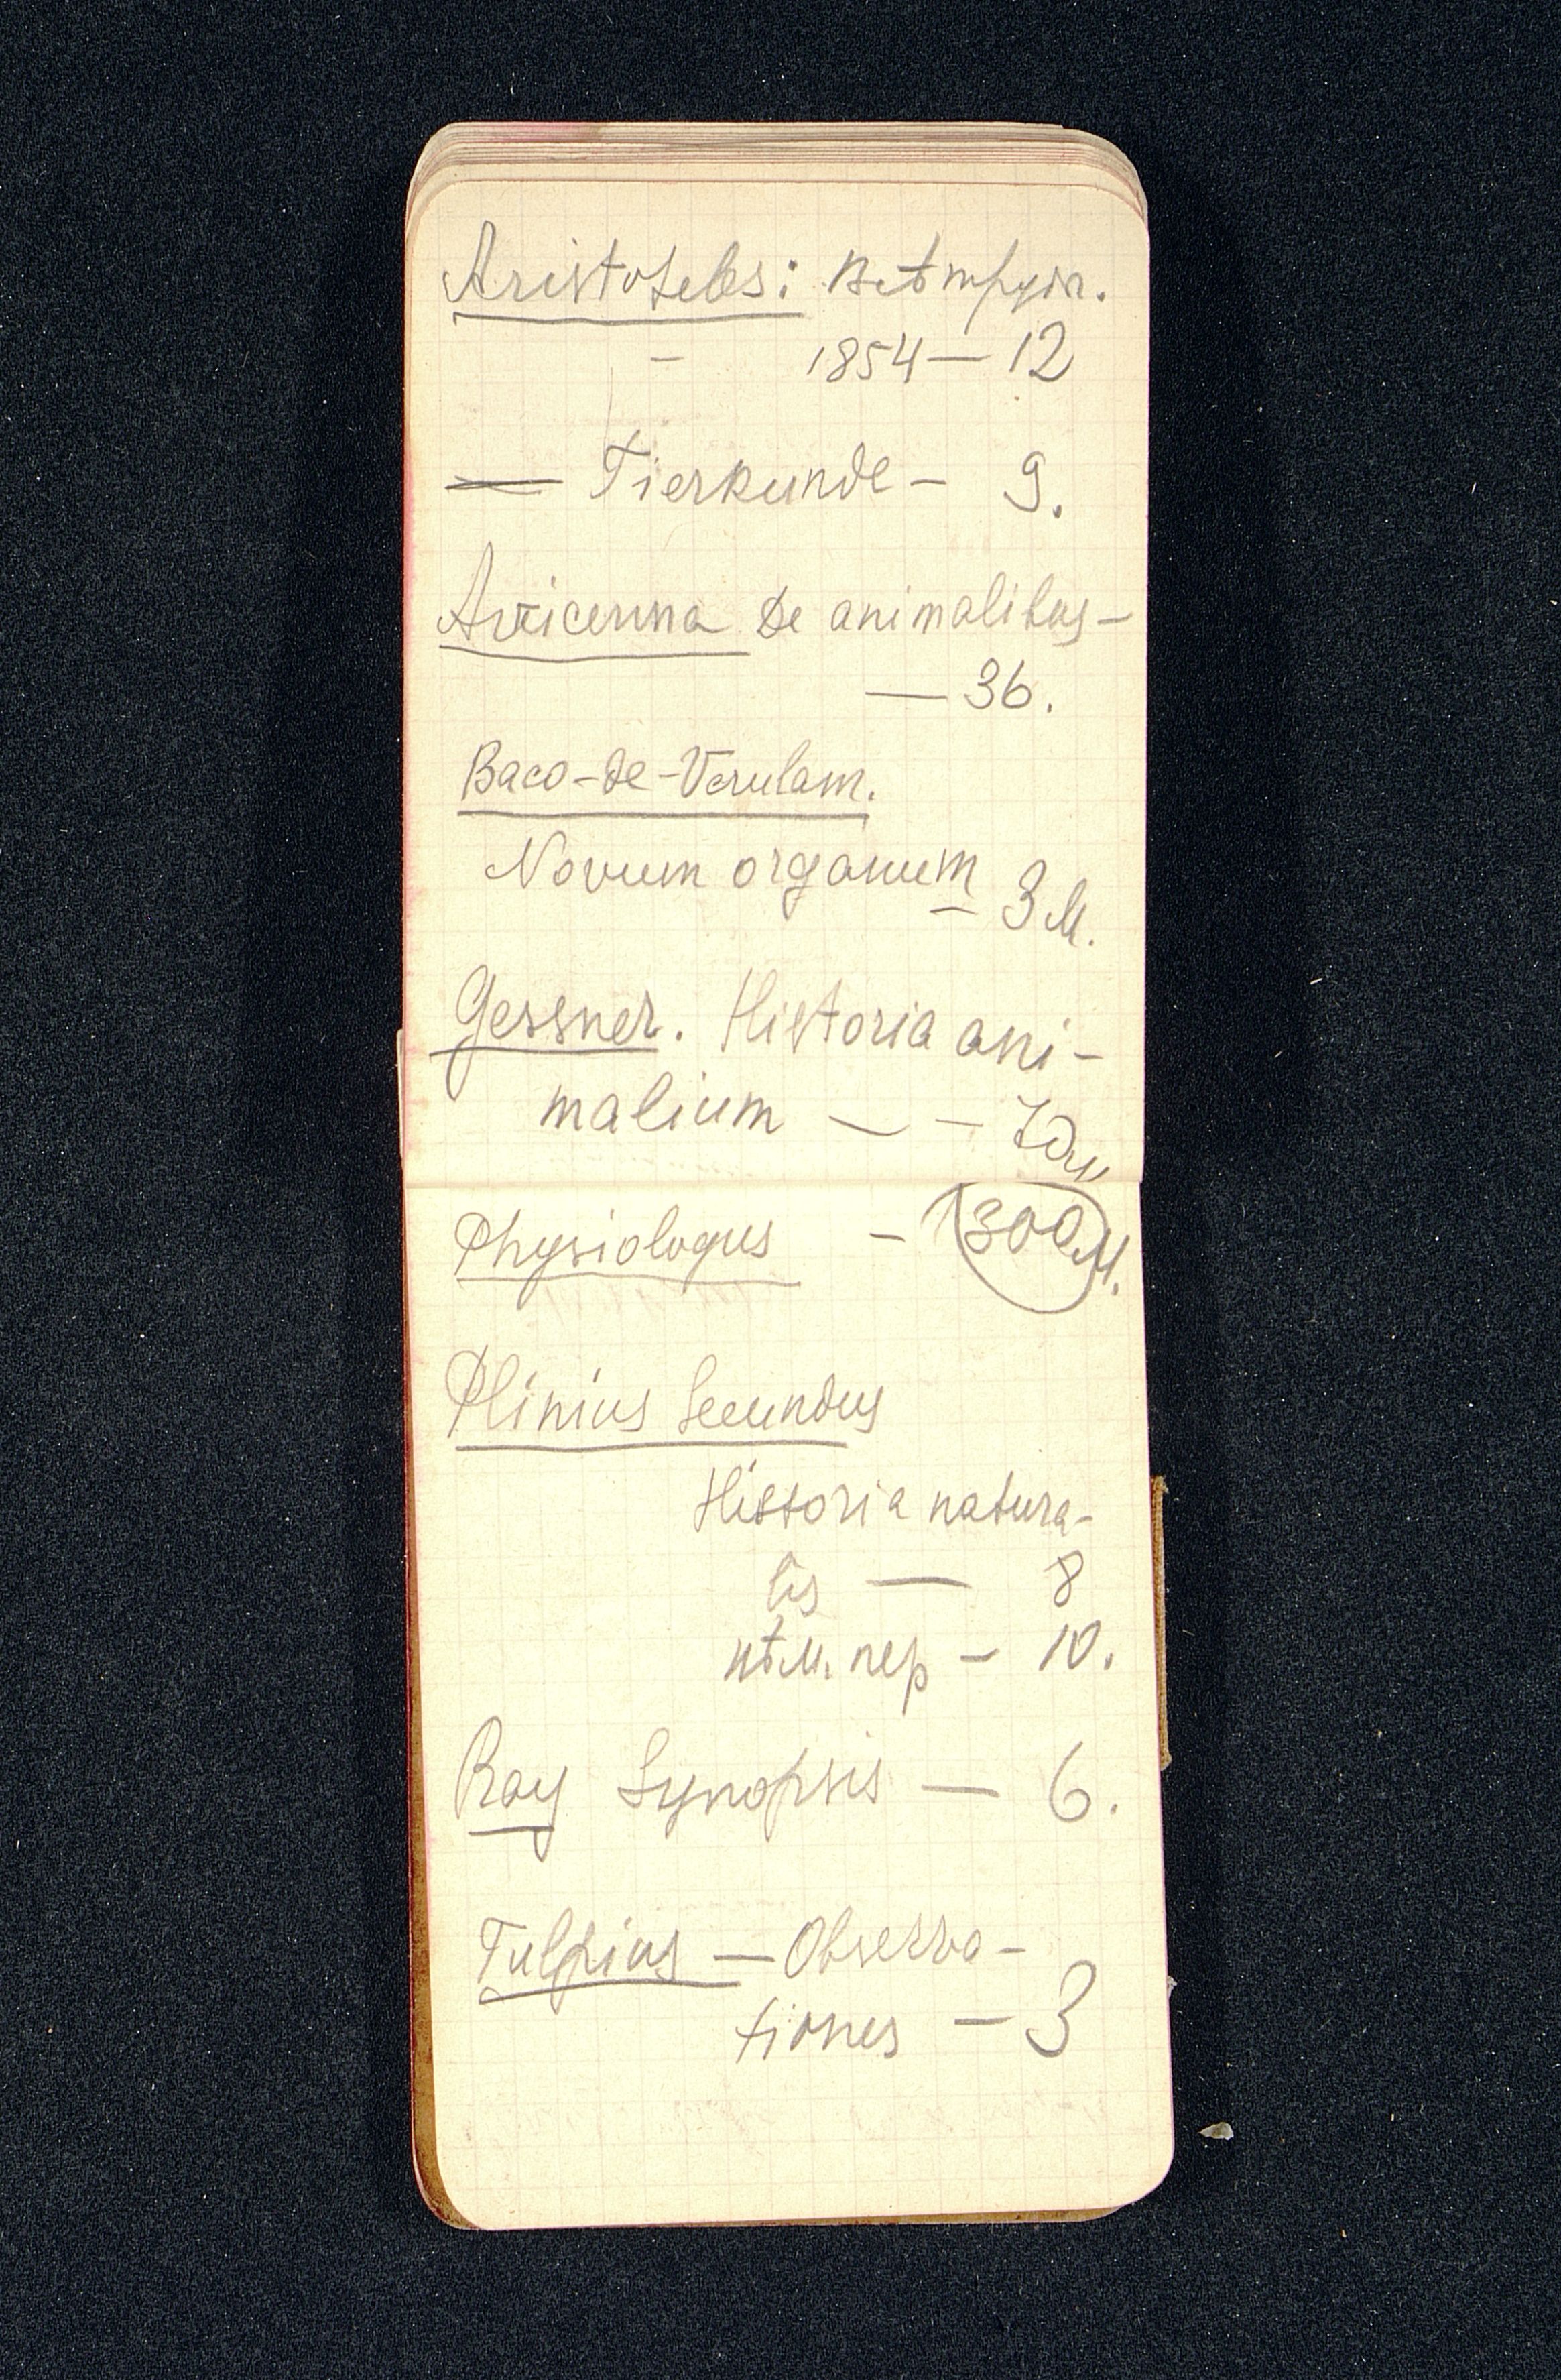 Aristoteles: Всѣ труды.
- 1854 — 12
— Tierkunde — 9.
Avicenna De animalibus —
— 36.
Baco-de-Verulam.
Novum organum
— 3 M.
Gessner. Historia ani-
malium — — 70 M
Physiologus — 300 M.
Plinius Secundus
Historia natura-
lis — 8
нѣм. пер — 10.
Ray Synopsis — 6.
Tulpius — Observa-
tiones — 3